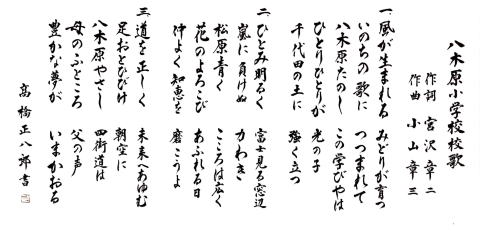 八木原小学校校歌
作詞 宮沢章二
作曲 小山章三
一、風が生まれる みどりが育つ
いのちの歌に つつまれて
八木原たのし この学びやは
ひとりひとりが 光の子
千代田の土に 強く立つ
二、ひとみ明るく 富士見る窓辺
嵐に負けぬ 力わき
松原青く こころは広く
花のよろこび あふれる日
仲よく知恵を 磨こうよ
三、道を正しく 未来へあゆむ
足おとひびけ 朝空に
八木原やさし 四街道は
母のふところ 父の声
豊かな夢が いまかおる
高橋正八郎書